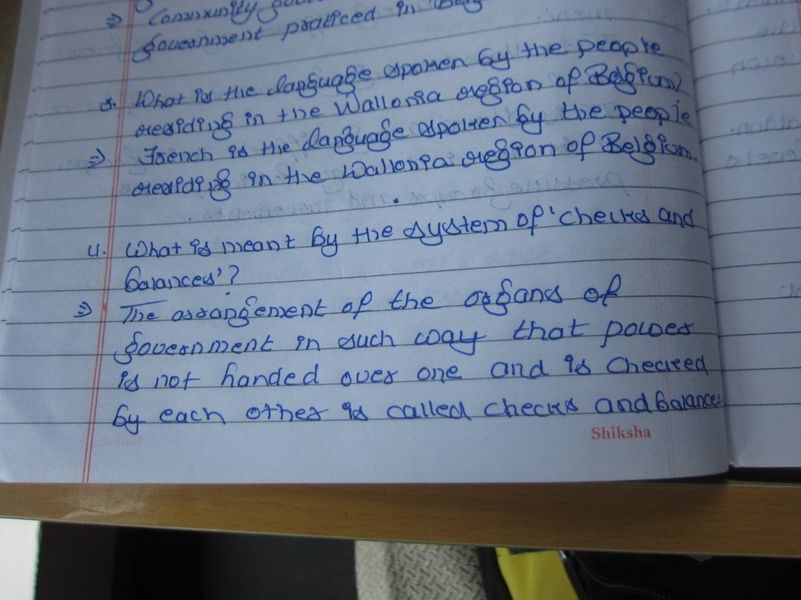 ⇒ Community gov
government practiced in Belg
3. What is the language spoken by the people
residing in the Wallonia region of Belgium?
⇒ French is the language spoken by the people
residing in the Wallonia region of Belgium.
4. What is meant by the system of 'checks and
balances'?
⇒ The arrangement of the organs of
government in such way that power
is not handed over one and is checked
by each other is called checks and balances
Shiksha